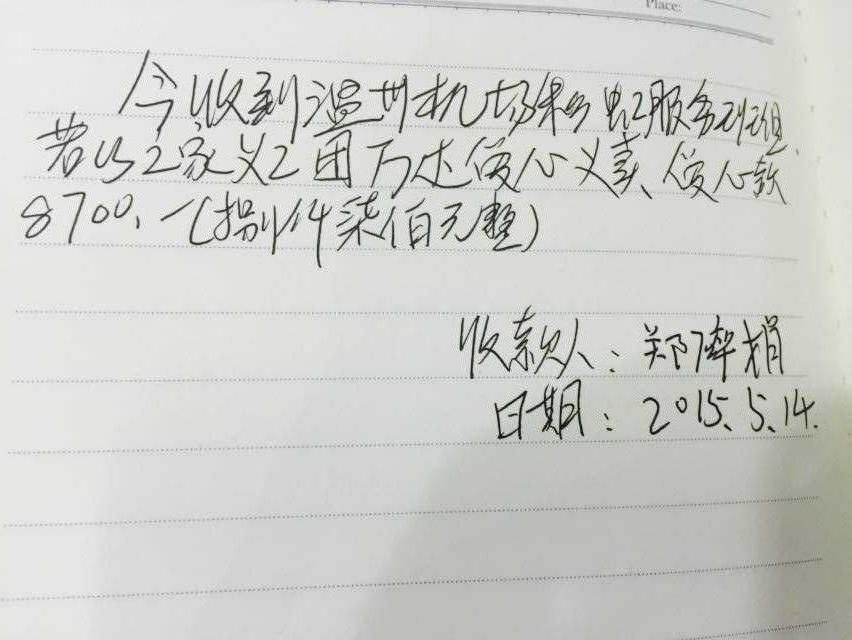 Place:
今收到温州机场 服务班组、
若以2家义工团万达爱心义卖、爱心款
8700.一(捌仟柒佰元整)
收款人:郑 娟
日期:2015.5.14.